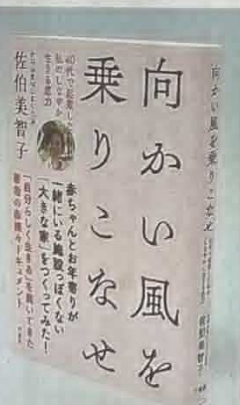 向かい風を
乗りこなせ
40代で起業した
私のしなやか
生きる底力
佐伯美智子
赤ちゃんとお年寄りが
一緒にいる施設っぽくない
「大きな家」をつくってみた!
「自分らしく生きる」を貫いてきた
向かい風を乗りこなせ
佐伯美智子